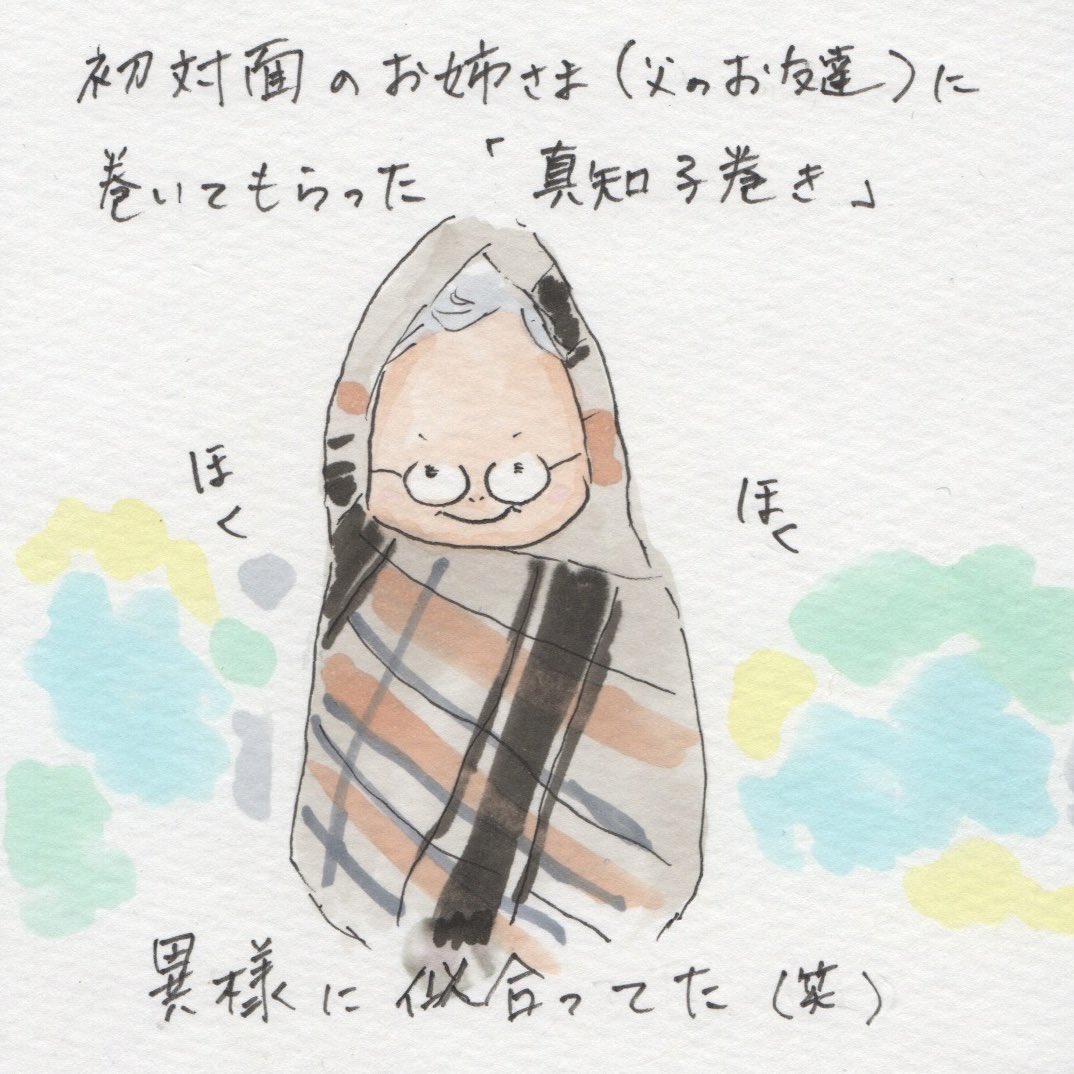 初対面のお姉さま(父のお友達)に
巻いてもらった「真知子巻き」
ほく
ほく
異様に似合ってた(笑)